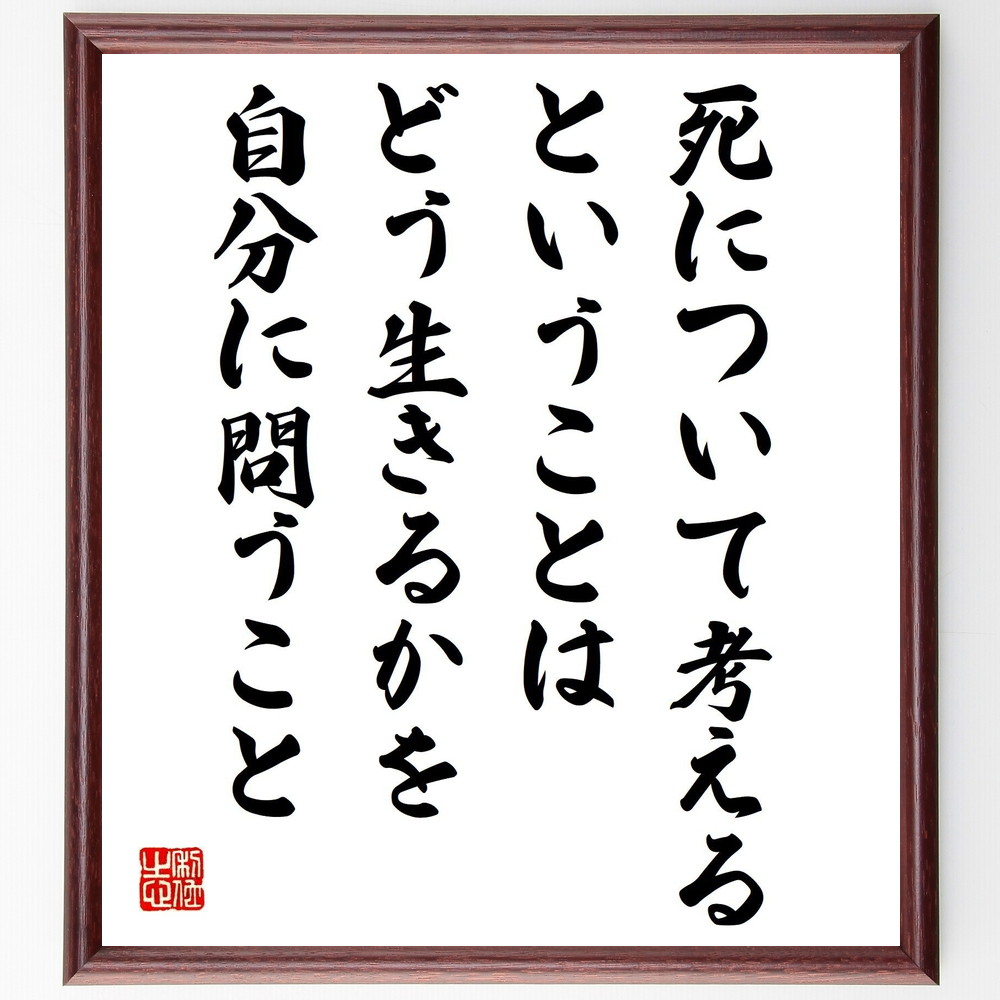 死について考える
ということは
どう生きるかを
自分に問うこと